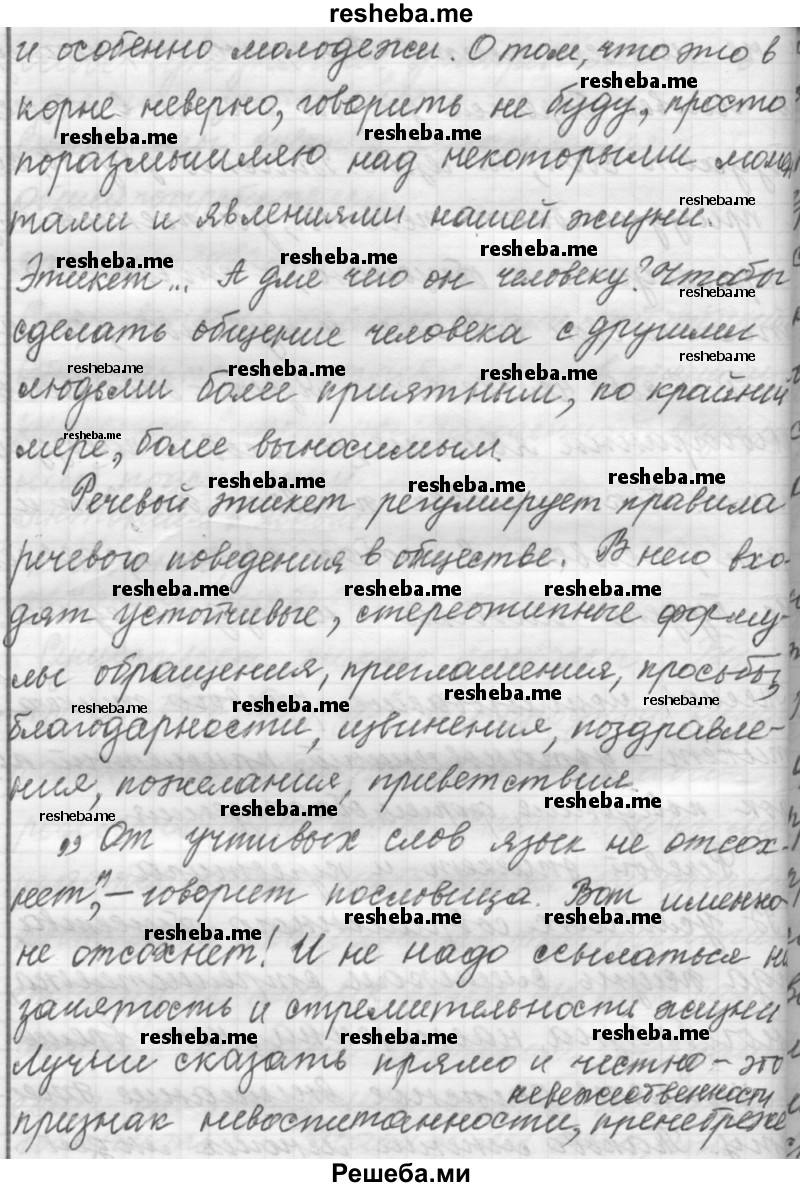 resheba.me
и особенно молодежи. О том, что это в
resheba.me
корне неверно, говорить не буду, просто
resheba.me resheba.me
поразмышляю над некоторыми момен
resheba.me
тами и явлениями нашей жизни.
resheba.me resheba.me resheba.me
Этикет... А для чего он человеку? Чтобы
resheba.me
сделать общение человека с другими
resheba.me
resheba.me resheba.me resheba.me
людьми более приятным, по крайней
resheba.me
мере, более выносимым.
resheba.me resheba.me resheba.me
Речевой этикет регулирует правила
речевого поведения в обществе. В него вхо-
resheba.me resheba.me resheba.me
дят устойчивые, стереотипные форму-
лы обращения, приглашения, просьбы,
resheba.me resheba.me resheba.me resheba.me
благодарности, извинения, поздравле-
ния, пожелания, приветствия.
resheba.me resheba.me resheba.me
„От учтивых слов язык не отсох-
нет", – говорит пословица. Вот именно
resheba.me resheba.me resheba.me
не отсохнет! И не надо ссылаться на
занятость и стремительность жизни
resheba.me resheba.me resheba.me
Лучше сказать прямо и честно – это
невежественности
признак невоспитанности, пренебреже
Решеба.ми